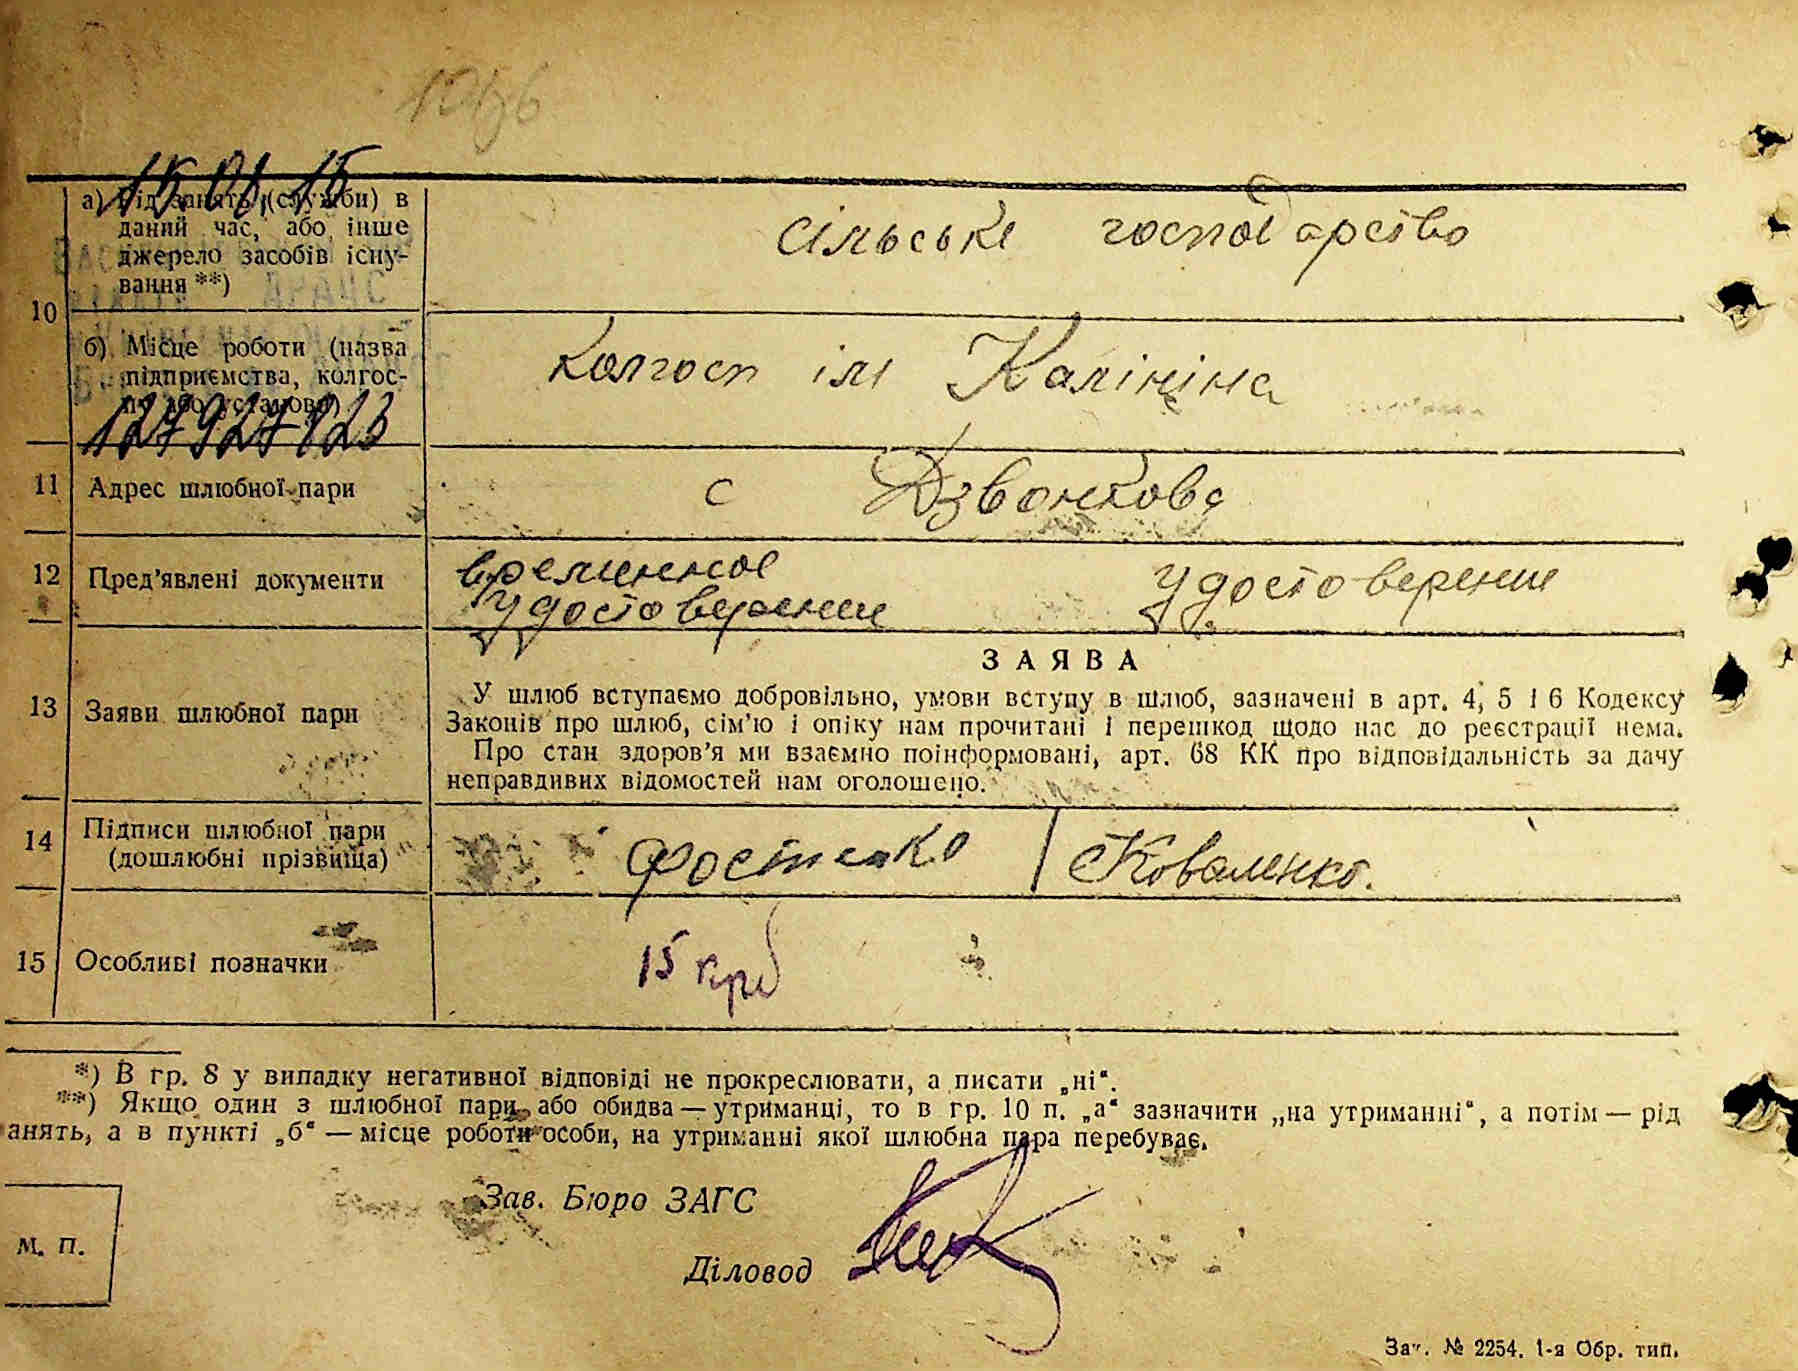 15.01.15
10
а) Рід занять (служби) в
даний час, або інше
джерело засобів існу-
вання **)
сільське господарство
б) Місце роботи (назва
підприємства, колгос-
пу або установи)
колгосп ім Калініна
127927823
11 Адрес шлюбної пари с Дзвонкова
12 Пред’явлені документи
временное
удостоверение удостоверение
13 Заяви шлюбної пари
ЗАЯВА
У шлюб вступаємо добровільно, умови вступу в шлюб, зазначені в арт. 4, 5 і 6 Кодексу
Законів про шлюб, сім’ю і опіку нам прочитані і перешкод щодо нас до реєстрації нема.
Про стан здоров’я ми взаємно поінформовані, арт. 68 КК про відповідальність за дачу
неправдивих відомостей нам оголошено.
14 Підписи шлюбної пари
(дошлюбні прізвища)
Фостенко Коваленко.
15 Особливі позначки 15 крб
*) В гр. 8 у випадку негативної відповіді не прокреслювати, а писати „ні“.
**) Якщо один з шлюбної пари або обидва — утриманці, то в гр. 10 п. „а“ зазначити „на утриманні“, а потім — рід
анять, а в пункті „б“ — місце роботи особи, на утриманні якої шлюбна пара перебуває.
Зав. Бюро ЗАГС
М. П.
Діловод
Зак. № 2254. 1-я Обр. тип.